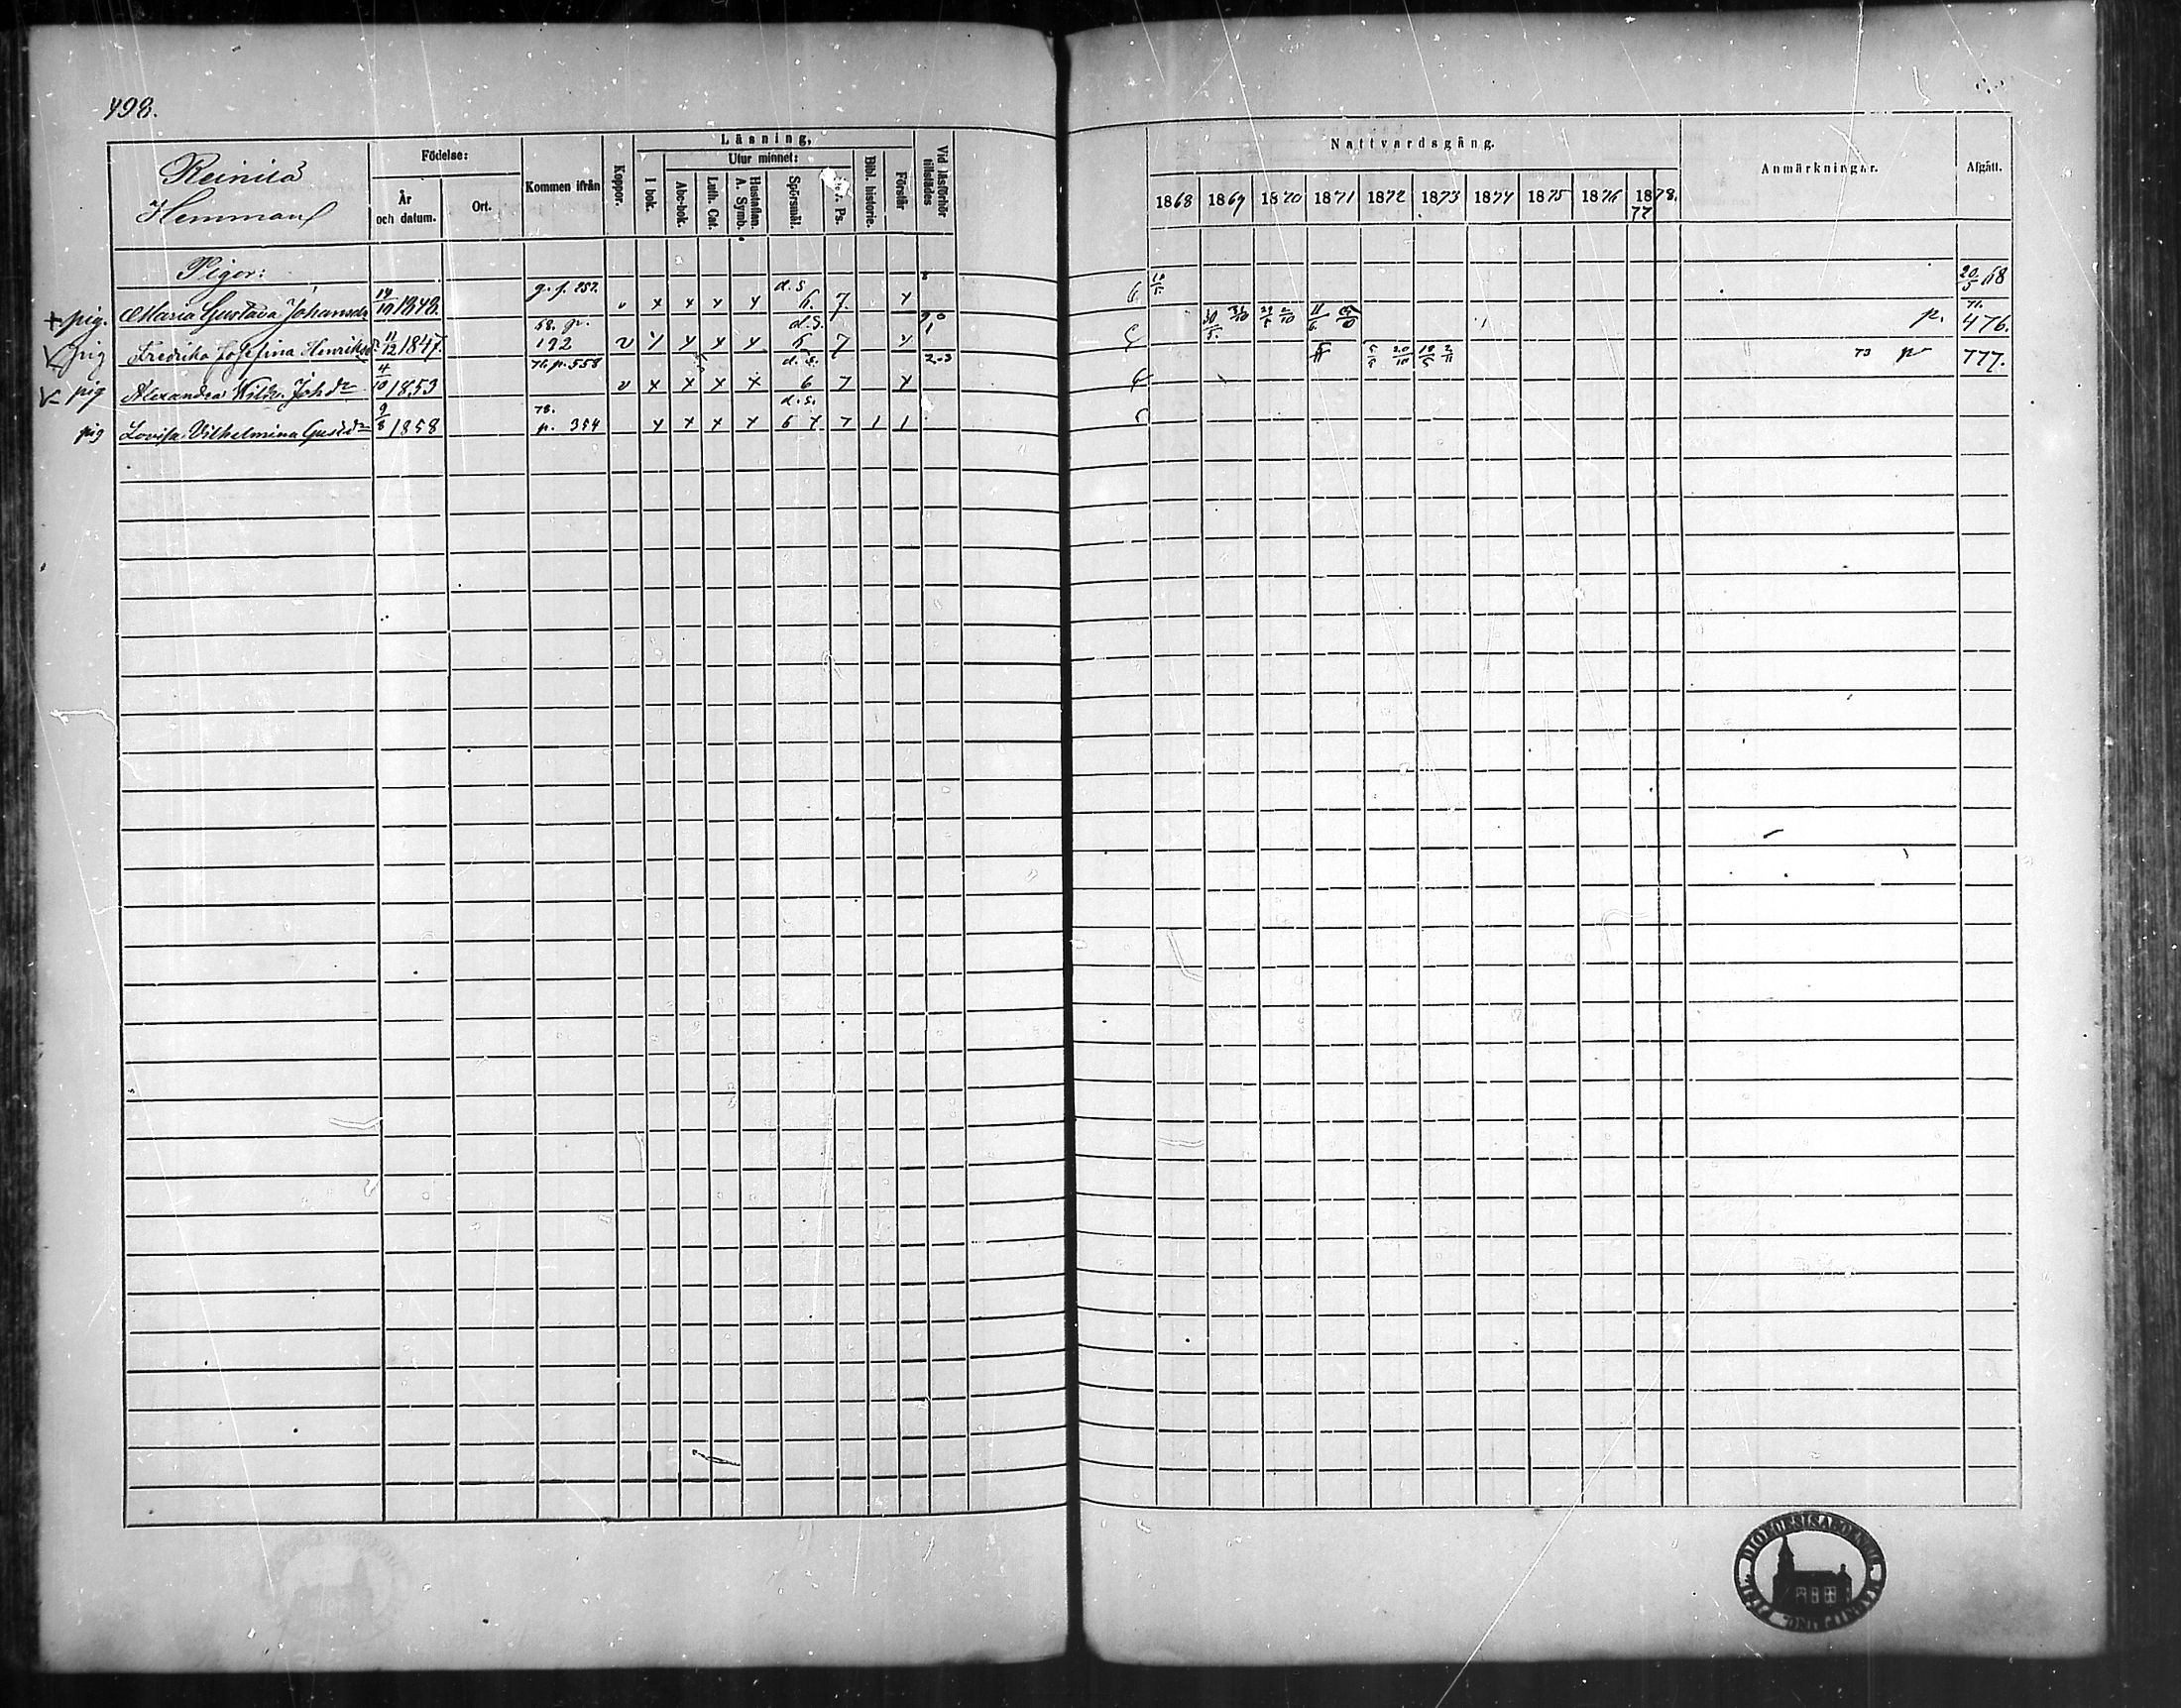 498.
Reinilä
Hemman
Födelse:
År
och datum.
Ort.
Kommen ifrån
Koppor.
Läsning,
I bok.
Utur minnet:
Abc-bok.
Luth. Cat.
Hustaflan.
A. Symb.
Spörsmål.
Ps.
Bibl. historie.
Förstår
Vid läsförhör
tillstädes
Nattvardsgång.
1868 1869 1870 1871 1872 1873 1874 1875 1876 1877 1878.
Anmärkningar.
Afgått.
Pigor:
+ pig. Maria Gustava Johansdr 14/10 1848. g. f. 252. v x x x x d. s 6. 7. x 20/5 68
pig Fredrika Josefina Henriksdr 11/12 1847. 68. gr. 192 v x x x d. s. 6 7 x 30/5. 11/6 p. 71. 476.
pig Alexandra Wilh. Johdr 4/10 1853 71. p. 558 v x x x x d. s. 6 7 x 2-3 5/5 20/10 18/5 2/11 73 p 777.
pig Lovisa Vilhelmina Gustdr 9/8 1858 78. p. 354 x x x x d. s. 6 7 7 1 1